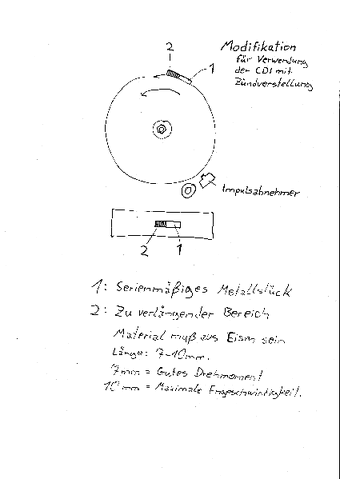 2
Modifikation
für Verwendung
der CDI mit
Zündverstellung
1
Impulsabnehmer
2
1
1: Serienmäßiges Metallstück
2: Zu verlängender Bereich
Material muß aus Eisen sein
Länge: 7-10mm.
7mm = Gutes Drehmoment
10mm = Maximale Endgeschwindigkeit.